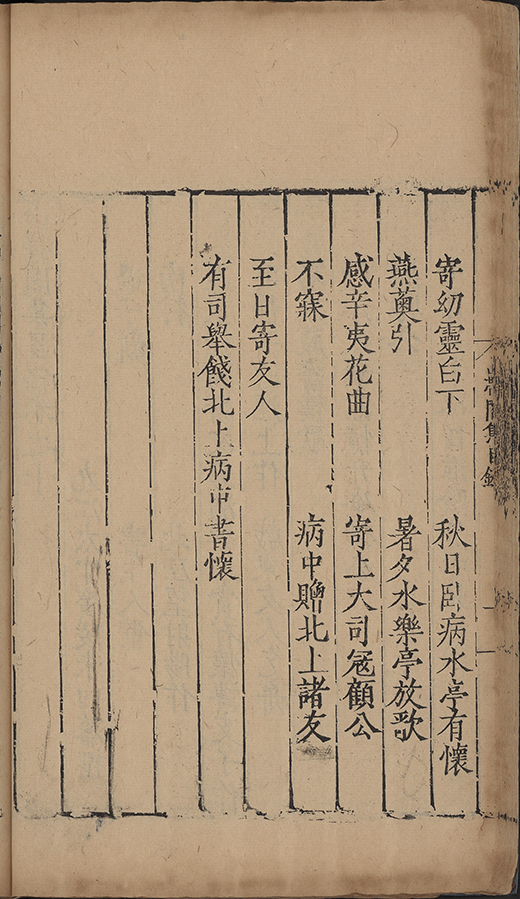 寄幼靈白下
秋日臥病水亭有懷
燕薁引
暑夕水樂亭放歌
感辛夷花曲
寄上大司寇顧公
不寐
病中贈北上諸友
至日寄友人
有司舉餞北上病中書懷
集目錄